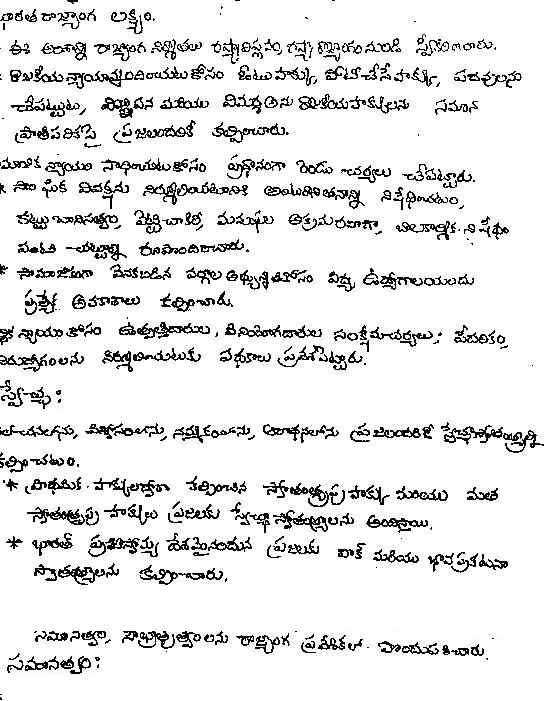 భారత రాజ్యాంగ లక్ష్యం.
- ఈ అంశాన్ని రాజ్యాంగ నిర్మాతలు రష్యా విప్లవం, నుండి స్వీకరించారు.
- రాజకీయ న్యాయాన్నందించుటకోసం ఓటుహక్కు, పోటీచేసే హక్కు, పదవులను
చేపట్టుట, విజ్ఞాపన మరియు విమర్శ అను రాజకీయహక్కులను సమాన
ప్రాతిపదికపై ప్రజలందరికీ కల్పించారు.
మాజిక న్యాయం సాధించుటకోసం ప్రధానంగా రెండు చర్యలు చేపట్టారు.
* సాంఘిక వివక్షను నిర్మూలించుటానికి అంటరానితనాన్ని నిషేధించటం,
కట్టుబానిసత్వం, వెట్టిచాకిరి, మనుషుల అక్రమరవాణా, బాలకార్మిక నిషేధం
వంటి చట్టాల్ని రూపొందించారు.
* సామాజికంగా వెనకబడిన వర్గాల అభ్యున్నతికోసం విద్య, ఉద్యోగాలయందు
ప్రత్యేక అవకాశాలు కల్పించారు.
ర్థిక న్యాయం కోసం ఉత్పత్తిదారులు, వినియోగదారుల సంక్షేమచర్యలు; పేదరికం,
నిరుద్యోగంలను నిర్మూలించుటకు పథకాలు ప్రవేశపెట్టారు.
స్వేచ్ఛ:
లోచనలోను, విశ్వాసంలోను, నమ్మకంలోను, ఆరాధనలోను ప్రజలందరికీ స్వేచ్ఛాస్వాతంత్య్రాన్ని
కల్పించటం.
* ప్రాథమిక హక్కులద్వారా కల్పించిన స్వాతంత్ర్యపు హక్కు మరియు మత
స్వాతంత్ర్యపు హక్కులు ప్రజలకు స్వేచ్ఛా స్వాతంత్ర్యాలను అందిస్తాయి.
* భారత్ ప్రజాస్వామ్య దేశమైనందున ప్రజలకు వాక్ మరియు భావప్రకటనా
స్వాతంత్ర్యాలను కల్పించారు.
సమానత్వం, సౌభ్రాతృత్వంలను రాజ్యాంగ ప్రవేశికలో పొందుపరిచారు.
సమానత్వం: